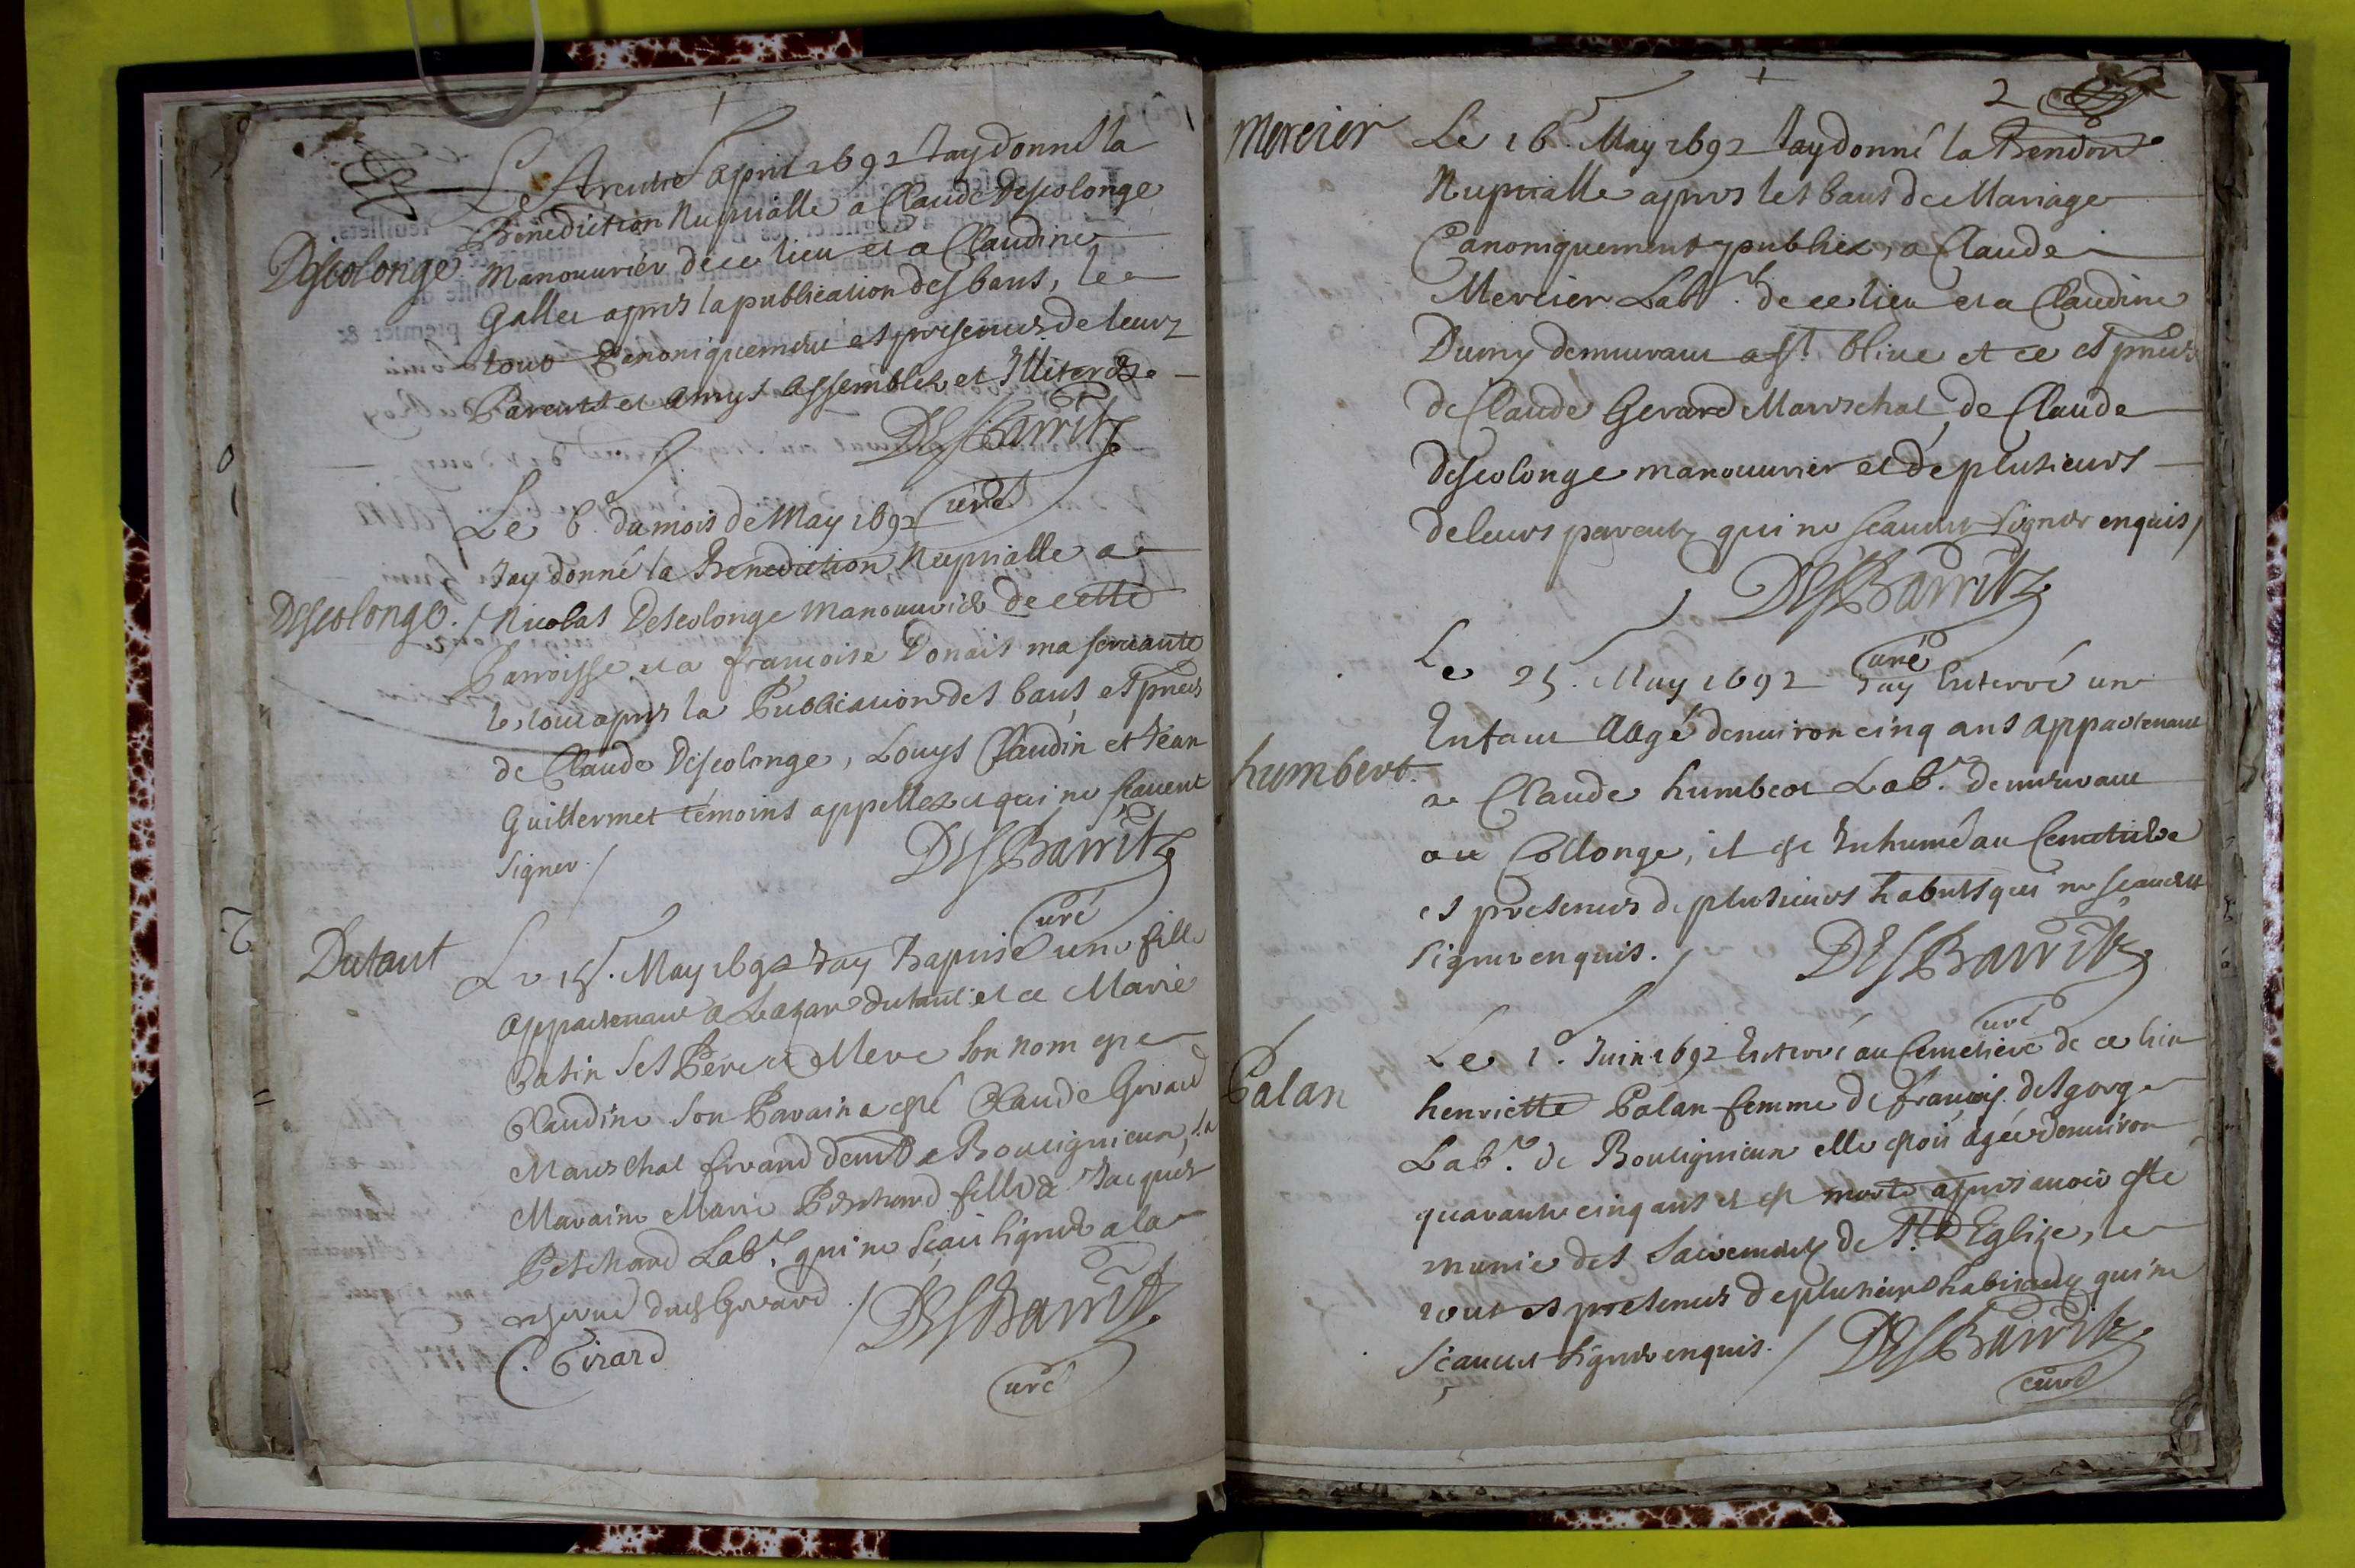 Le trentie april 1692 Jay donné la
Benediction Nuptialle a Claude Descolonge
Descolonge
Manouurier de ce lieu et a Claudine
Gallet apres la publication des bans, le
tout Canoniquement es presences de leurs
Parents et Amys assemblez et Illiterez
DesBarritz
curé
Le 6e du mois de May 1692
Jay donné la Benediction Nuptialle a
Descolonge.
Nicolas Descolonge Manouurier de cette
Parroisse et a francoise Donais ma seruante
le tout apres la Publication des bans es pnces
de Claude Descolonge, Louys Claudin et Jean
Guillermet témoins appellez et qui ne scauent
signer./
DesBarritz
curé
Dutaut
Le 15e. May 1692 Jay Baptisé une fille
appartenant a Lazare dutaut et a Marie
Batin ses Pere et Mere son nom est
Claudine son Parain a esté Claude Girard
Mareschal ferrand demt a Bouligneun, sa
Maraine Marie Petchard fille de Jacques
Petchard Labr. qui ne sçait signer a la
reserue dud Girard
C. Girard
DesBarritz
curé
2
Mercier
Le 16e. May 1692 Jay donné la Bendon
Nuptialle apres les bans de Mariage
Canoniquement publiez, a Claude
Mercier Labr. de ce lieu et a Claudine
Dumy demeurant a St. Oliue et ce es pnces
de Claude Gerard Mareschal, de Claude
Descolonge manouurier et de plusieurs
de leurs parents qui ne scauent signer enquis/
DesBarritz
curé
Le 25. May 1692 Jay Enterré un
Enfant Aagé denuiron cinq ans appartenant
humbert.
a Claude humbert Labr. demeurant
au Collonge, il est Inhumé au Cemetiere
es presences de plusieurs habnts qui ne scauent
signer enquis./
DesBarritz
curé
Le 1e. Juin 1692 Enterré au Cemetiere de ce lieu
Palan
henriette Palan femme de francois desgorge
Labr. de Bouligneun elle estoit agée denuiron
quarante cinq ans et est morte apres auoir esté
munie des sacrements de Ste Eglize, le
tout es presences de plusieurs habitants qui ne
sçauent signer enquis./
DesBarritz
curé